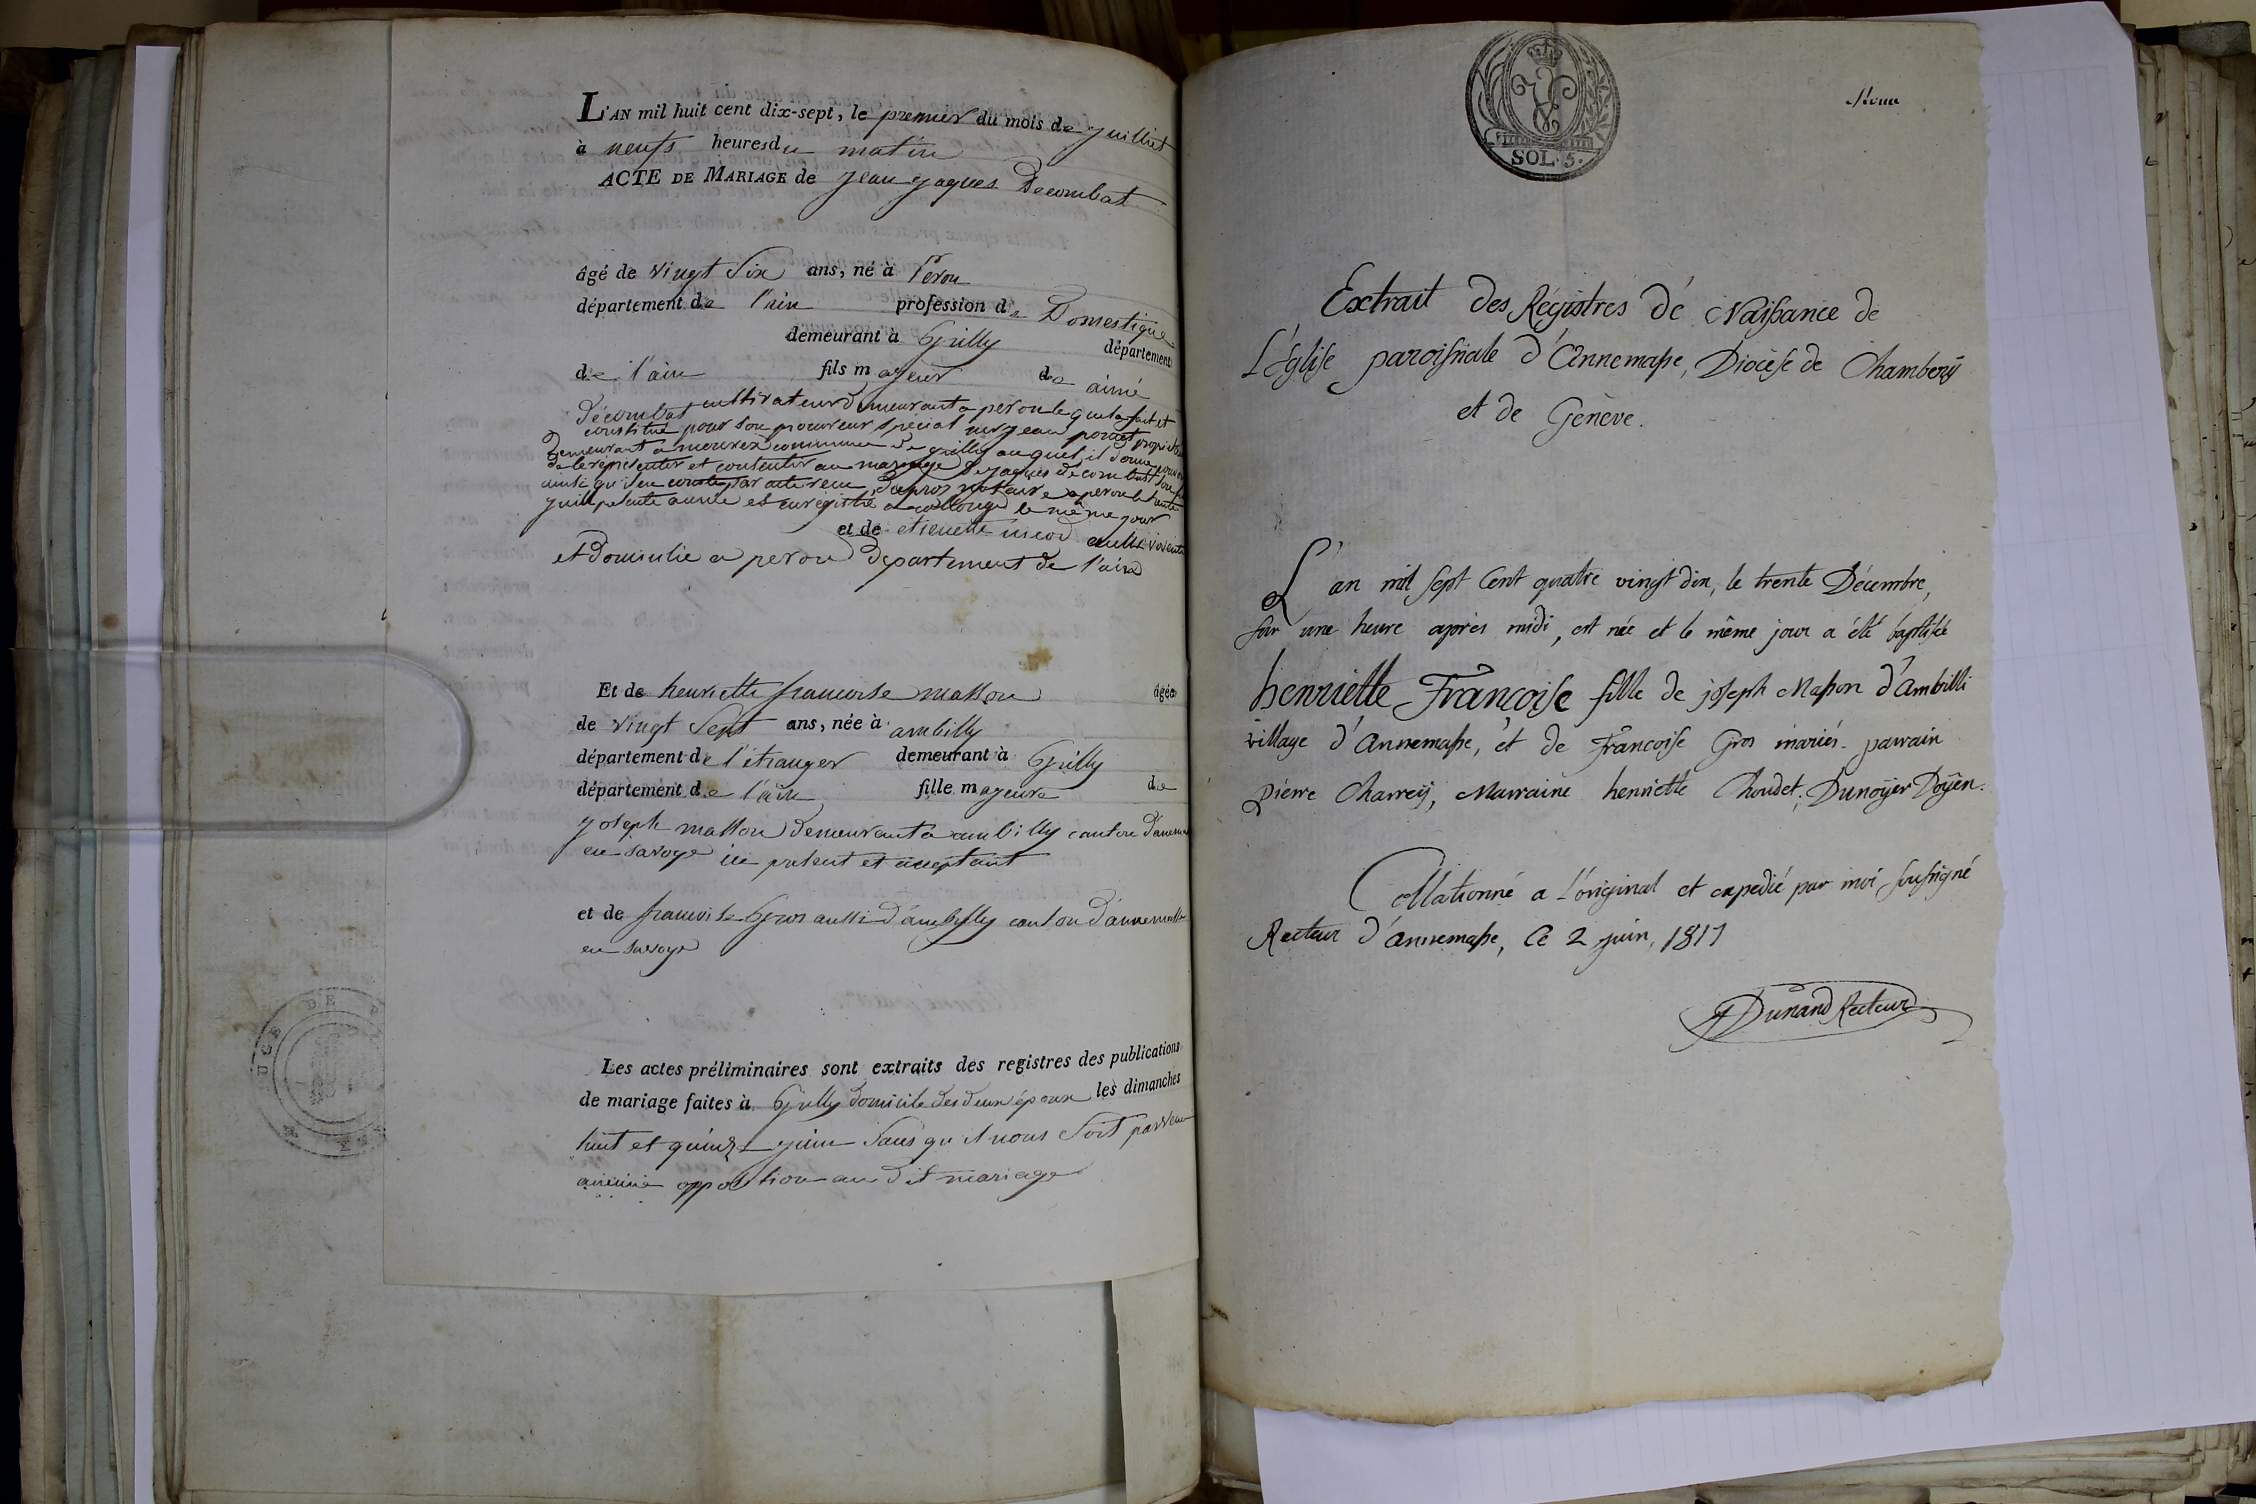 L'AN mil huit cent dix-sept, le premier du mois de juillet
à neufs heures du matin
ACTE DE MARIAGE de jean jaques Decombat
âgé de vingt six ans, né à Perou
département de l'ain profession de Domestique
demeurant à Grilly département
de l'ain fils majeur de aimé
Décombat cultivateur Demeurant a perou lequel a fait et
constitué pour son procureur special
Demeurant a mourex commune de grilly auquel il donne pouvoir
de le représenter et consentir au mariage de jaques décombat son
ainsi qu'il en conste par acte reçu notaire a perou le trente
année et enregistré a collonge le même jour
et de etienette
et Domicilie a perou Departement de l'ain
Et de henriette francoise masson âgée
de vingt sept ans, née à ambilly
département de l'étranger demeurant à Grilly
département de l'ain fille majeure de
joseph masson Demeurant a ambilly canton
en savoye ici present et acceptant
et de francoise Gros aussi d'ambilly canton d'annemasse
en savoye
Les actes préliminaires sont extraits des registres des publications
de mariage faites à Grilly domicile des deux époux les dimanches
huit et quinze juin sans qu'il nous soit parvenu
aucune opposition au dit mariage
SOL. 5.
Extrait des Régistres dé Naissance de
L'église paroissiale d'Annemasse, Diocèse de Chambery
et de Genève.
L'an mil sept Cent quatre vingt dix, le trente Décembre,
sur une heure après midi, est née et le même jour a été baptisée
henriette Françoise fille de joseph Masson d'Ambilli
village d'Annemasse, et de Francoise Gros mariés. parrain
pierre Charrey, Marraine henriette Choudet; Dunoyer Doyen.
Collationné a L'original et expedié par moi soussigné
Recteur d'annemasse, Ce 2 juin, 1817
Dunand Recteur